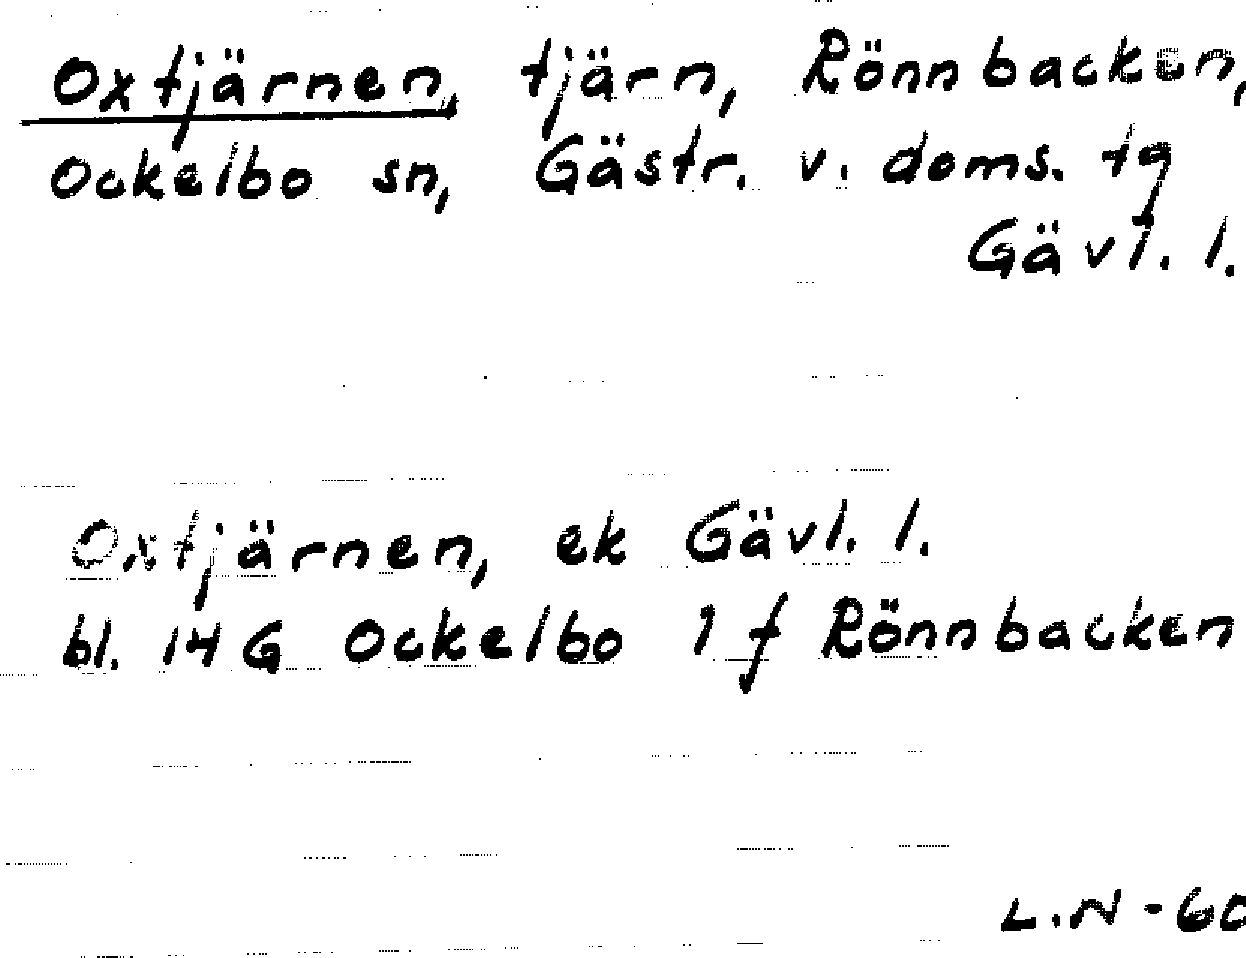 Oxtjärnen, tjärn, Rönnbacken,
Ockelbo sn, Gästr. v. doms. tg
Gävl. l.
Oxtjärnen, ek Gävl. l.
bl. 14 G Ockelbo 1 f Rönnbacken
L.N - 60